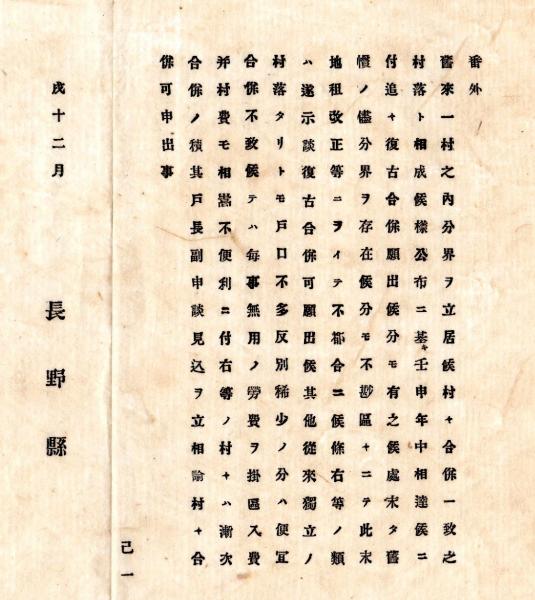 番外
舊來一村之內分界ヲ立居候村々合併一致之
村落ト相成候樣公布ニ基キ壬申年中相達候ニ
付追々復古合併願出候分モ有之候處未タ舊
慣ノ儘分界ヲ存在候分モ不尠區々ニテ此末
地租改正等ニヲイテ不都合ニ候條右等ノ類
ハ遂示談復古合併可願出候其他從來獨立ノ
村落タリトモ戶口不多反別稀少ノ分ハ便宜
合併不致候テハ每事無用ノ勞費ヲ掛區入費
并村費モ相嵩不便利ニ付右等ノ村々ハ漸次
合併ノ積其戶長副申談見込ヲ立相諭村々合
併可申出事
戌十二月
長野縣
己一